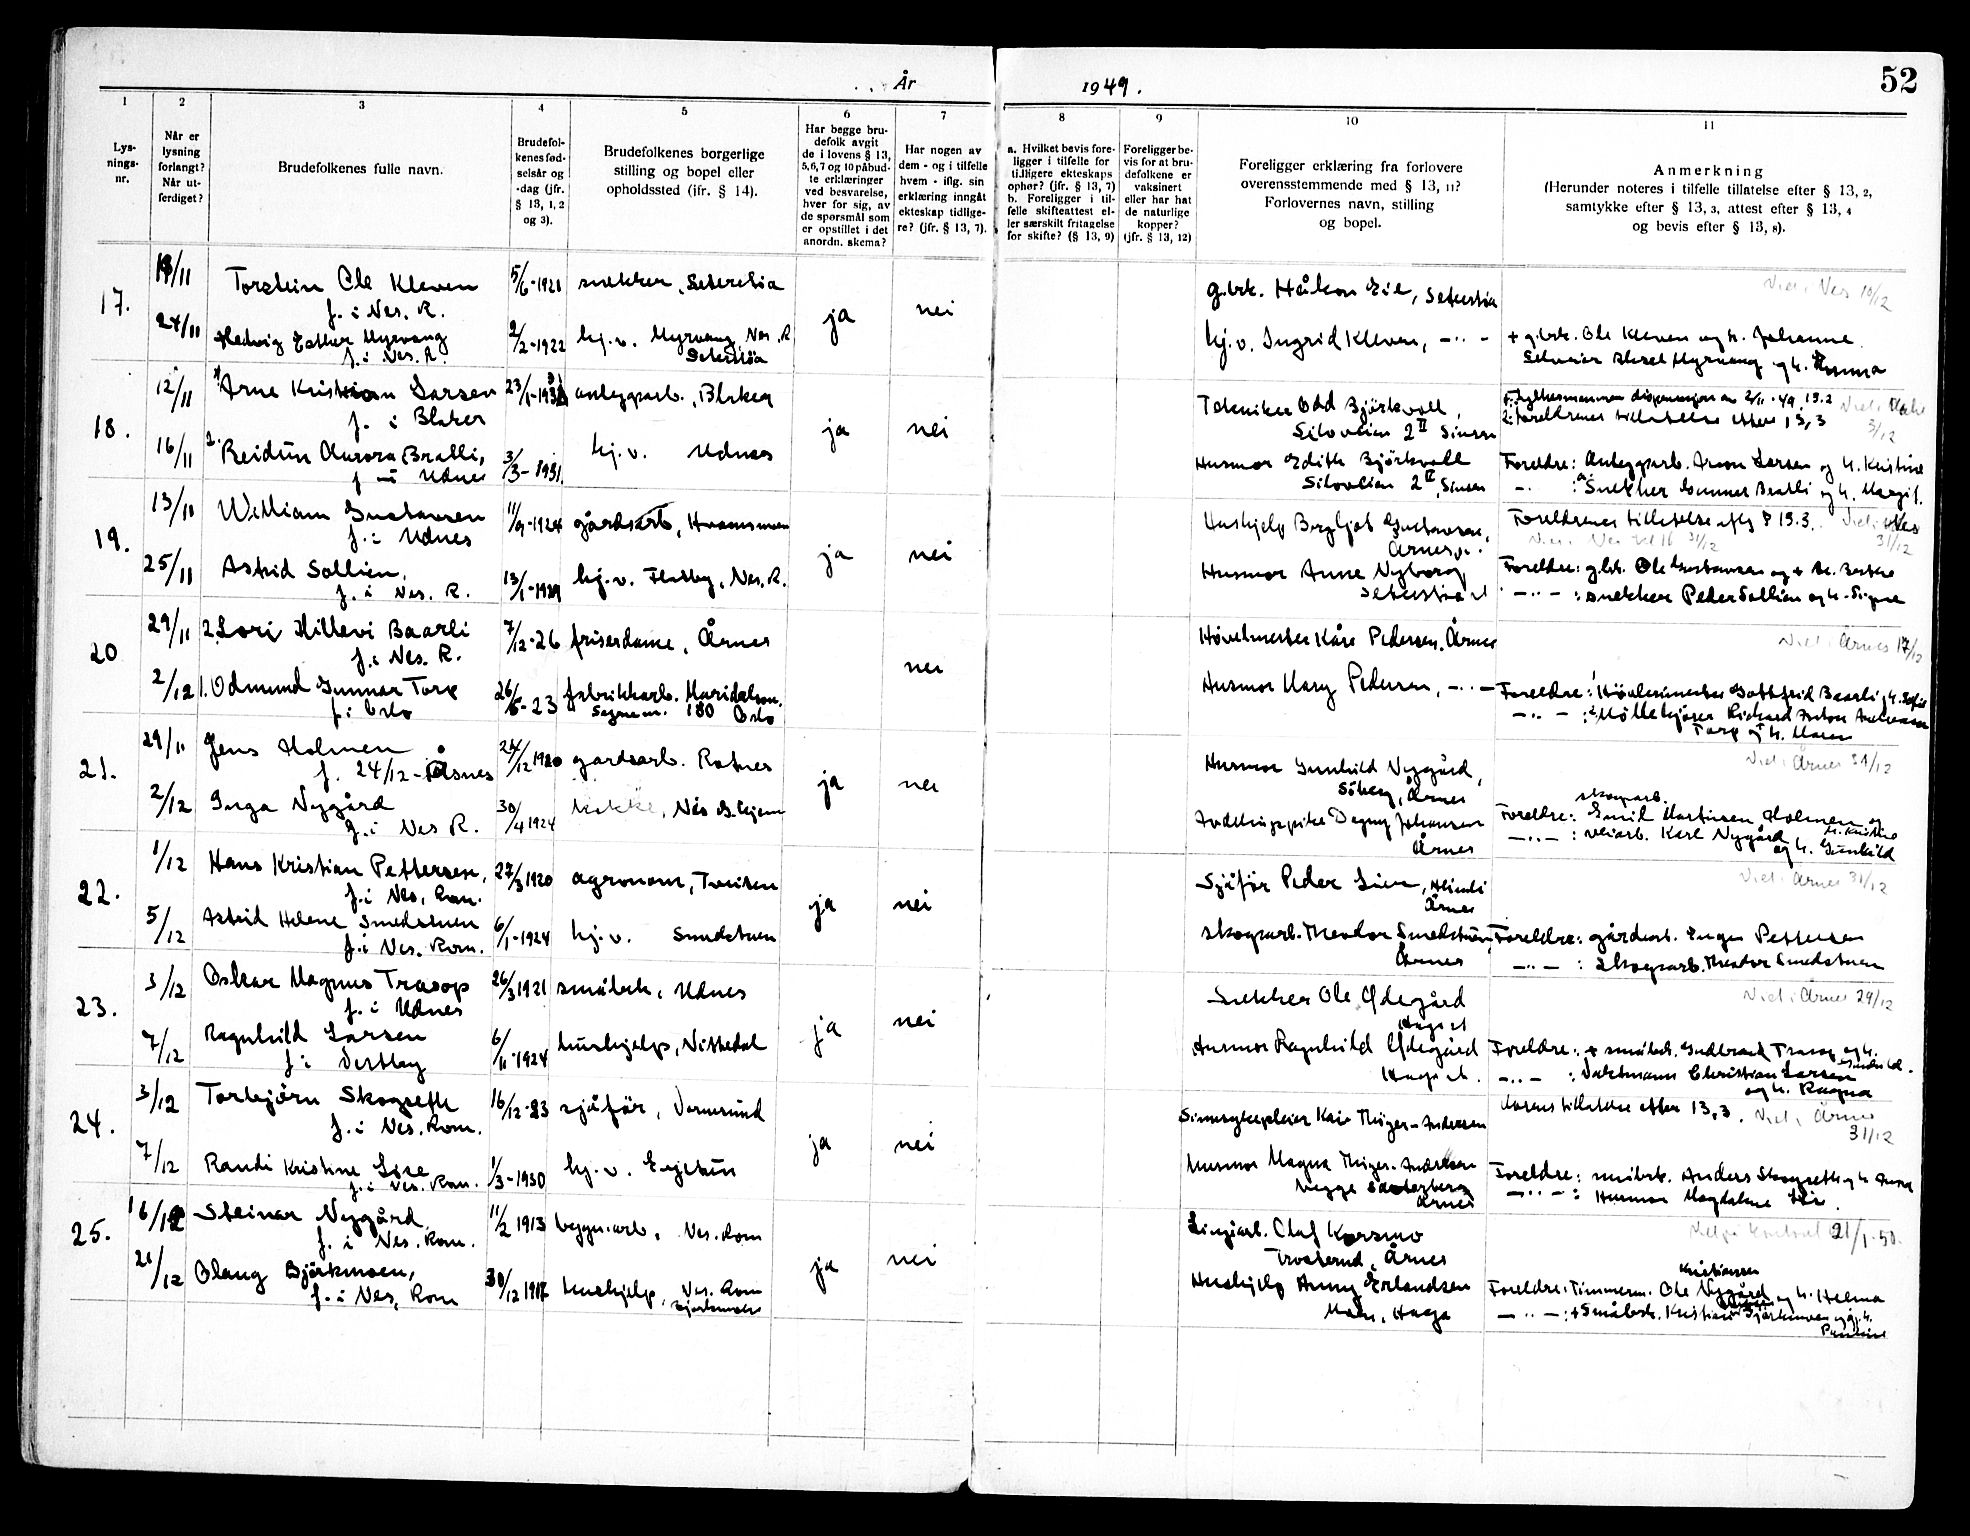 År 1949.
52
1
2
3
4
5
6
7
8
9
10
11
Lys-
nings-
nr.
Når er
lysning
forlangt?
Når ut-
ferdiget?
Brudefolkenes fulle navn.
Brudefol-
kenes fød-
selsår og
-dag (jfr.
§ 13, 1, 2
og 3).
Brudefolkenes borgerlige
stilling og bopel eller
opholdssted (jfr. § 14).
Har begge bru-
defolk avgit
de i lovens § 13,
5, 6, 7 og 10 påbud-
te erklæringer
ved besvarelse,
hver for sig, av
de spørsmål som
er opstillet i det
anordn. skema?
Har nogen av
dem - og i tilfelle
hvem - iflg. sin
erklæring inngåt
ekteskap tidlige-
re? (jfr. § 13, 7).
a. Hvilket bevis fore-
ligger i tilfelle for
tidligere ekteskaps
ophør? (jfr. § 13, 7)
b. Foreligger i til-
felle skifteattest el-
ler særskilt fritagelse
for skifte? (§ 13, 9)
Foreligger be-
vis for at bru-
defolkene er
vaksinert
eller har hat
de naturlige
kopper?
(jfr. § 13, 12)
Foreligger erklæring fra forlovere
overensstemmende med § 13, 11?
Forlovernes navn, stilling
og bopel.
Anmerkning
(Herunder noteres i tilfelle tillatelse efter § 13, 2,
samtykke efter § 13, 3, attest efter § 13, 4
og bevis efter § 13, 8).
17.
18/11
Torstein Ole Kleven
f. i Nes. R.
5/6-1921
snekker, Seterstøa
ja
nei
g.brk. Håkon Eie, Seterstøa
Viet i Nes 10/12
24/11
Hedvig Esther Myrvang
f. i Nes. R.
2/2-1922
hj.v. Myrvang, Nes. R
Seterstøa
hj.v. Ingrid Kleven, -..-
+ g.brk. Ole Kleven og h. Johanne.
Myrvang og h.
18.
12/11
Arne Kristian Larsen
f. i Blaker
anleggsarb., Blaker
ja
nei
Tekniker Odd Bjørkvoll,
Silovlien 2 II Sinsen
2. foreldrenes tillatelse efter 13,3
3/12
16/11
2. Reidun Aurora Bralli,
f. i Udnes
3/3-1931.
hj.v. Udnes
Husmor Edith Bjørkvoll
Silovlien 2 II, Sinsen
Foreldre: Anleggsarb. Larsen og h. Kristine
-..- : Snekker Gunnar Bralli og h. Margit.
19.
13/11
William Gustavsen
f. i Udnes
11/9-1924
gårdsarb., Hvamsmoen
ja
nei
Hushjelp Bergljot Gustavsen,
Foreldrenes tillatelse eftg § 13.3. Viet i Nes
31/12
25/11
Astrid Sollien,
f. i Nes. R.
13/1-1929
hj.v. Fladby, Nes. R.
Husmor Anne Nyborg
Foreldre: g.brk. Ole Gustavsen og
-..- : snekker Peder Sollien og h. Signe
20
29/11
2. Lori Hillevi Baarli
f. i Nes. R.
7/12-26
friserdame, Årnes
nei
Høvelmester Kåre Pedersen, Årnes
Viet i Årnes 17/12
2/12
1. Odmund Gunnar Torp
f. i Oslo
26/6-23
fabrikkarb. Maridalsvn.
180 Oslo
Husmor Mary Pedersen, -..-
Foreldre: Høvlerimester Gottfrid Baarli og h. Sofie
-..- : Møllekjører Rickard Anton Andreassen
Torp og h. Maren
21.
29/11
Jens Holmen
f. 24/12-Åsnes
24/12 1920
gardsarb. Rotnes
ja
nei
Husmor Gunhild Nygård,
Søberg, Årnes
Viet i Årnes 31/12
2/12
Inga Nygård
f. i Nes R.
30/4 1924
kokke, Nes G.hjem
Avdelingspike Dagny Johansen
Årnes
skogsarb.
Foreldre: Emil Martinsen Holmen og
h. Kristine
-..- : veiarb. Karl Nygård
og h. Gunhild
22.
1/12
Hans Kristian Pettersen,
f. i Nes, Rom.
27/3 1920
agronom, Tveiten
ja
nei
Sjåfør Peder Lien,
Årnes
Viet i Årnes 31/12
5/12
Astrid Helene Smedstuen
f. i Nes. Rom.
6/1-1924
hj.v. Smedstuen
skogsarb. Theodor Smedstuen,
Årnes
Foreldre: gårdsarb. Pettersen
-..- : Skogsarb. Theodor Smedstuen
23.
3/12
Oskar Magnus Trasop
f. i Udnes
26/3 1921
småbrk., Udnes
ja
nei
Snekker Ole Ødegård
Haga st
Viet i Årnes 29/12
7/12
Ragnhild Larsen
f. i Vestby
6/11-1924
hushjelp, Nittedal
Husmor Ragnhild Ødegård
Haga st.
Foreldre: + småbrk. Gudbrand Trasop og h.
-..- : Vaktmann Christian Larsen
og h. Ragna
24.
3/12
Torbjørn Skogseth
f. i Nes. Rom.
16/12-23
sjåfør, Vormsund
ja
nei
Sinnsykepleier Kai Thiger-Andersen
Morens tillatelse efter 13,3. Viet i Årnes
31/12
7/12
Randi Kristine Lise
f. i Nes. Rom.
1/3-1930
hj.v.
Husmor Magna Thiger-Andersen
Årnes
Foreldre: småbrk. Anders Skogseth og h. Anna
-..- : Husmor Magdalene
25.
16/12
Steinar Nygård.
f. i Nes. Rom.
11/2 1913
bygn.arb., Nes. Rom
ja
nei
Linjearb. Olaf Korsmo
Årnes
21/1-50.
21/12
Olaug Bjørkmoen,
f. i Nes, Rom
30/12 1917
hushjelp, Nes. Rom
Hushjelp Anny Erlandsen
Haga
Kristiansen
Foreldre: Tømmerm. Ole Nygård og h. Helma
-..- : + Småbrk. Kristian Bjørkmoen og h.
Pauline